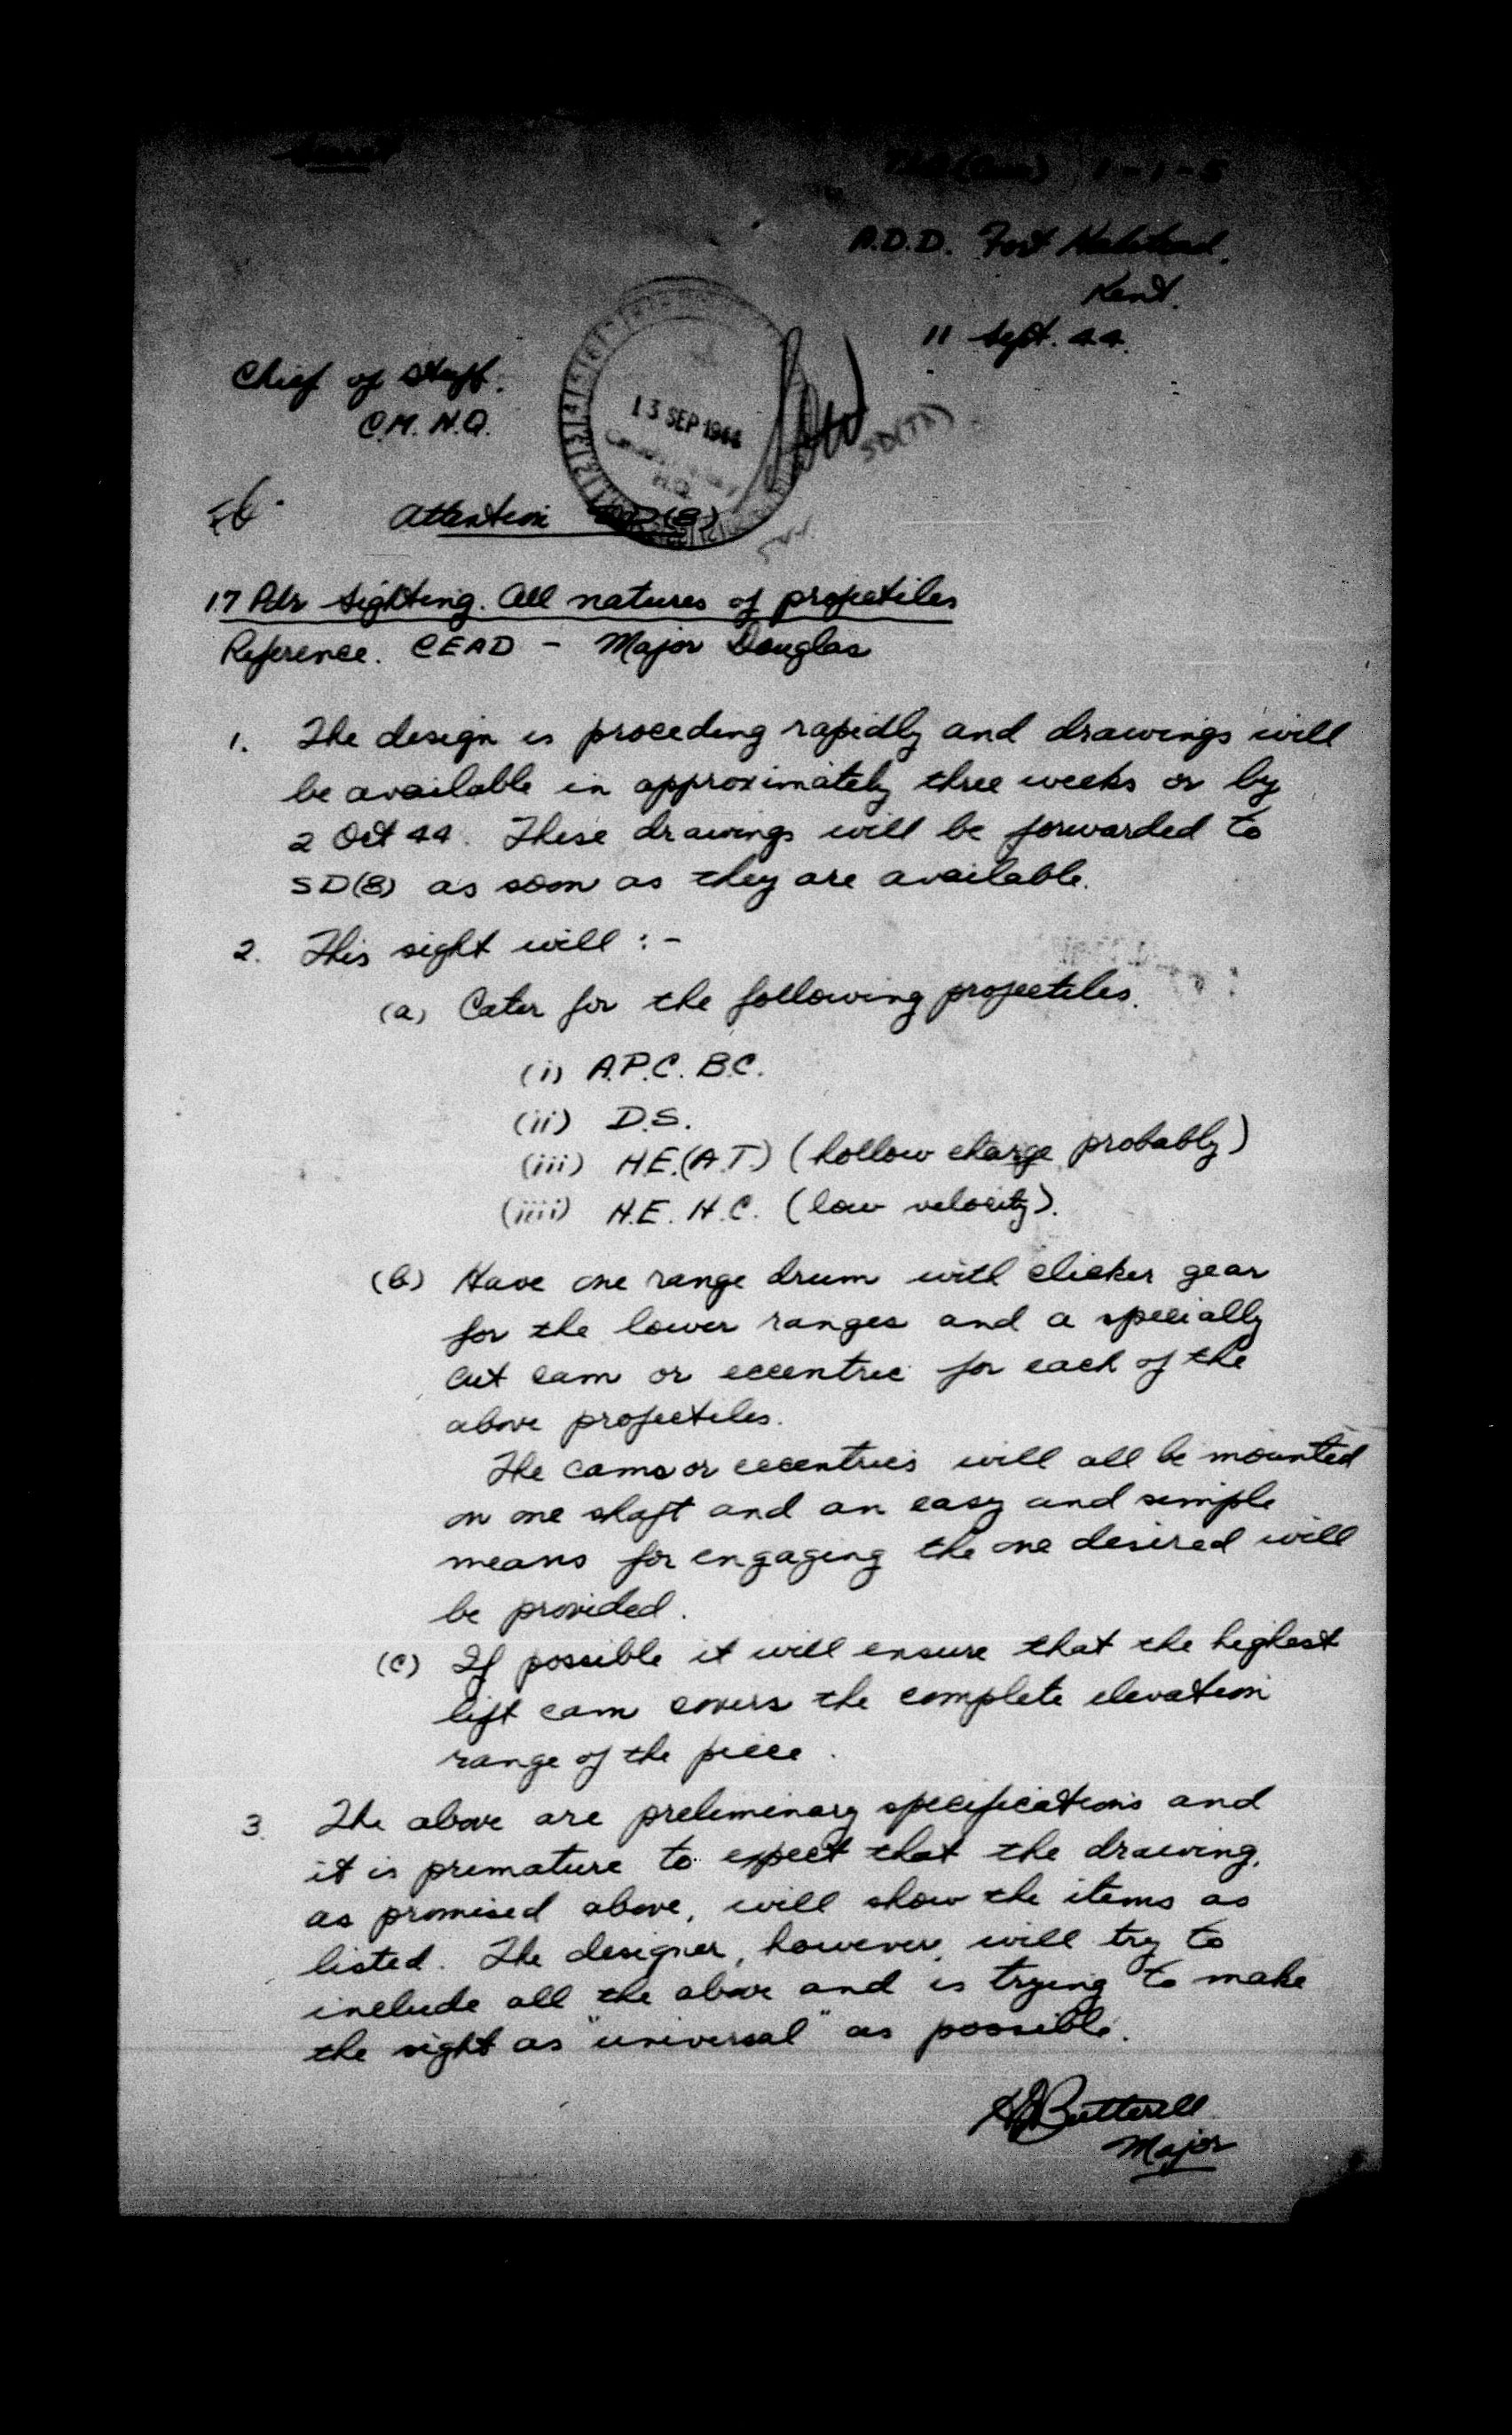 1-1-5
A.D.D. Fort Halstead,
Kent.
11 Sept. 44.
Chief of Staff.
C.M.H.Q.
13 SEP 1944
H.Q.
SD(TA)
Attention SD(8)
17 Pdr Sighting. All natures of projectiles
Reference. CEAD - Major Douglas
1. The design is proceding rapidly and drawings will
be available in approximately three weeks or by
2 Oct 44. These drawings will be forwarded to
SD(8) as soon as they are available.
2. This sight will :-
(a) Cater for the following projectiles.
(i) A.P.C.B.C.
(ii) D.S.
(iii) H.E.(A.T.) (hollow charge probably)
(iiii) H.E. H.C. (low velocity).
(b) Have one range drum with clicker gear
for the lower ranges and a specially
cut cam or eccentric for each of the
above projectiles.
The cams or eccentrics will all be mounted
on one shaft and an easy and simple
means for engaging the one desired will
be provided.
(c) If possible it will ensure that the highest
lift cam covers the complete elevation
range of the piece.
3. The above are preliminary specifications and
it is premature to expect that the drawing,
as promised above, will show the items as
listed. The designer, however, will try to
include all the above and is trying to make
the sight as "universal" as possible.
Butterell
Major